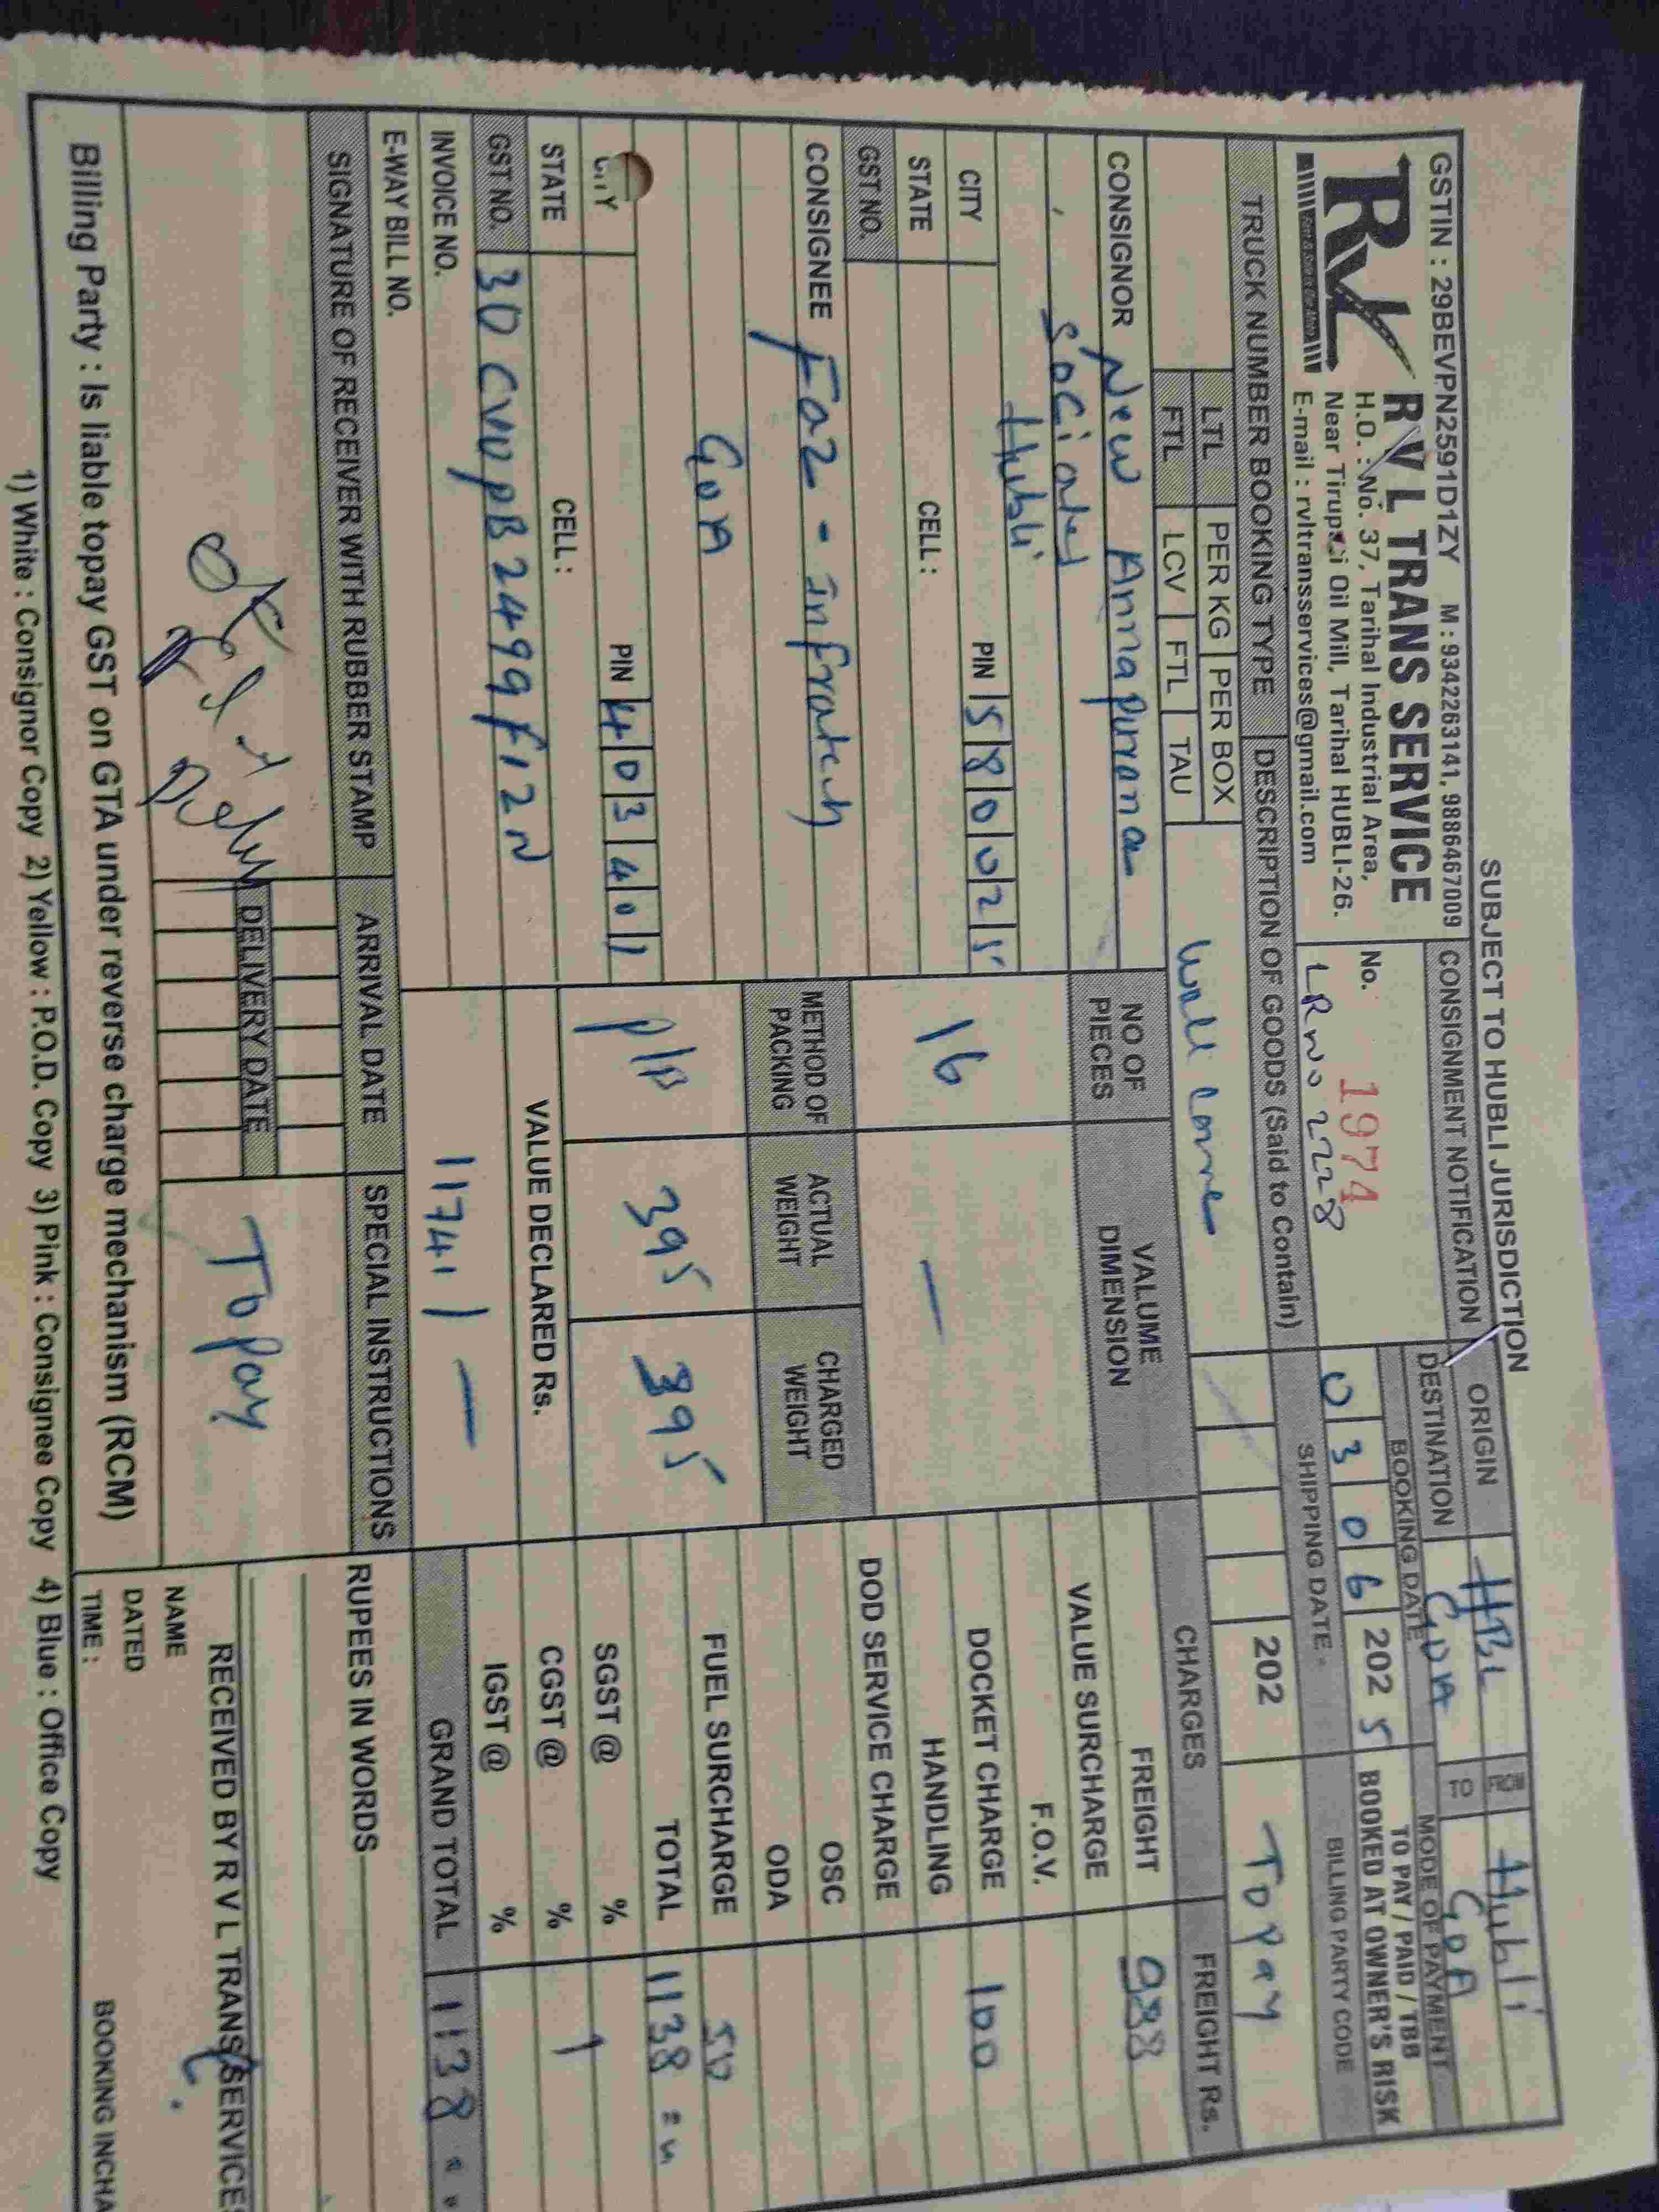 SUBJECT TO HUBLI JURISDICTION
GSTIN : 29BEVPN2591D1ZY M : 9342263141, 9886467009
RVL
R V L TRANS SERVICE
H.O. : No. 37, Tarihal Industrial Area,
Near Tirupati Oil Mill, Tarihal HUBLI-26.
E-mail : rvltransservices@gmail.com
CONSIGNMENT NOTIFICATION
No. 1974
LR no 2228
ORIGIN HBL FROM Hubli
DESTINATION GOA TO GOA
BOOKING DATE
0 3 0 6 202 5
SHIPPING DATE
202
MODE OF PAYMENT
TO PAY / PAID / TBB
BOOKED AT OWNER'S RISK
BILLING PARTY CODE
To pay
TRUCK NUMBER BOOKING TYPE DESCRIPTION OF GOODS (Said to Contain)
LTL PER KG PER BOX
FTL LCV FTL TAU
wall
CONSIGNOR New Annapurona
sociates
Hubli
CITY PIN 5 8 0 0 2 5
STATE CELL :
GST NO.
CONSIGNEE Faz - Infratech
GOA
CITY PIN 4 0 3 4 0 1
STATE CELL :
GST NO. 30CVVPB2499F1ZN
INVOICE NO.
E-WAY BILL NO.
NO OF PIECES VALUME DIMENSION
16 —
METHOD OF PACKING ACTUAL WEIGHT CHARGED WEIGHT
P/B 395 395
VALUE DECLARED Rs.
11741 | —
CHARGES FREIGHT Rs.
FREIGHT 988
VALUE SURCHARGE
F.O.V.
DOCKET CHARGE 100
HANDLING
DOD SERVICE CHARGE
OSC
ODA
FUEL SURCHARGE 50
TOTAL 1138
SGST @ %
CGST @ %
IGST @ %
GRAND TOTAL 1138
SIGNATURE OF RECEIVER WITH RUBBER STAMP ARRIVAL DATE SPECIAL INSTRUCTIONS
DELIVERY DATE
To pay
RUPEES IN WORDS
RECEIVED BY R V L TRANS SERVICES
NAME
DATED
TIME : BOOKING INCHA
Billing Party : Is liable topay GST on GTA under reverse charge mechanism (RCM)
1) White : Consignor Copy 2) Yellow : P.O.D. Copy 3) Pink : Consignee Copy 4) Blue : Office Copy